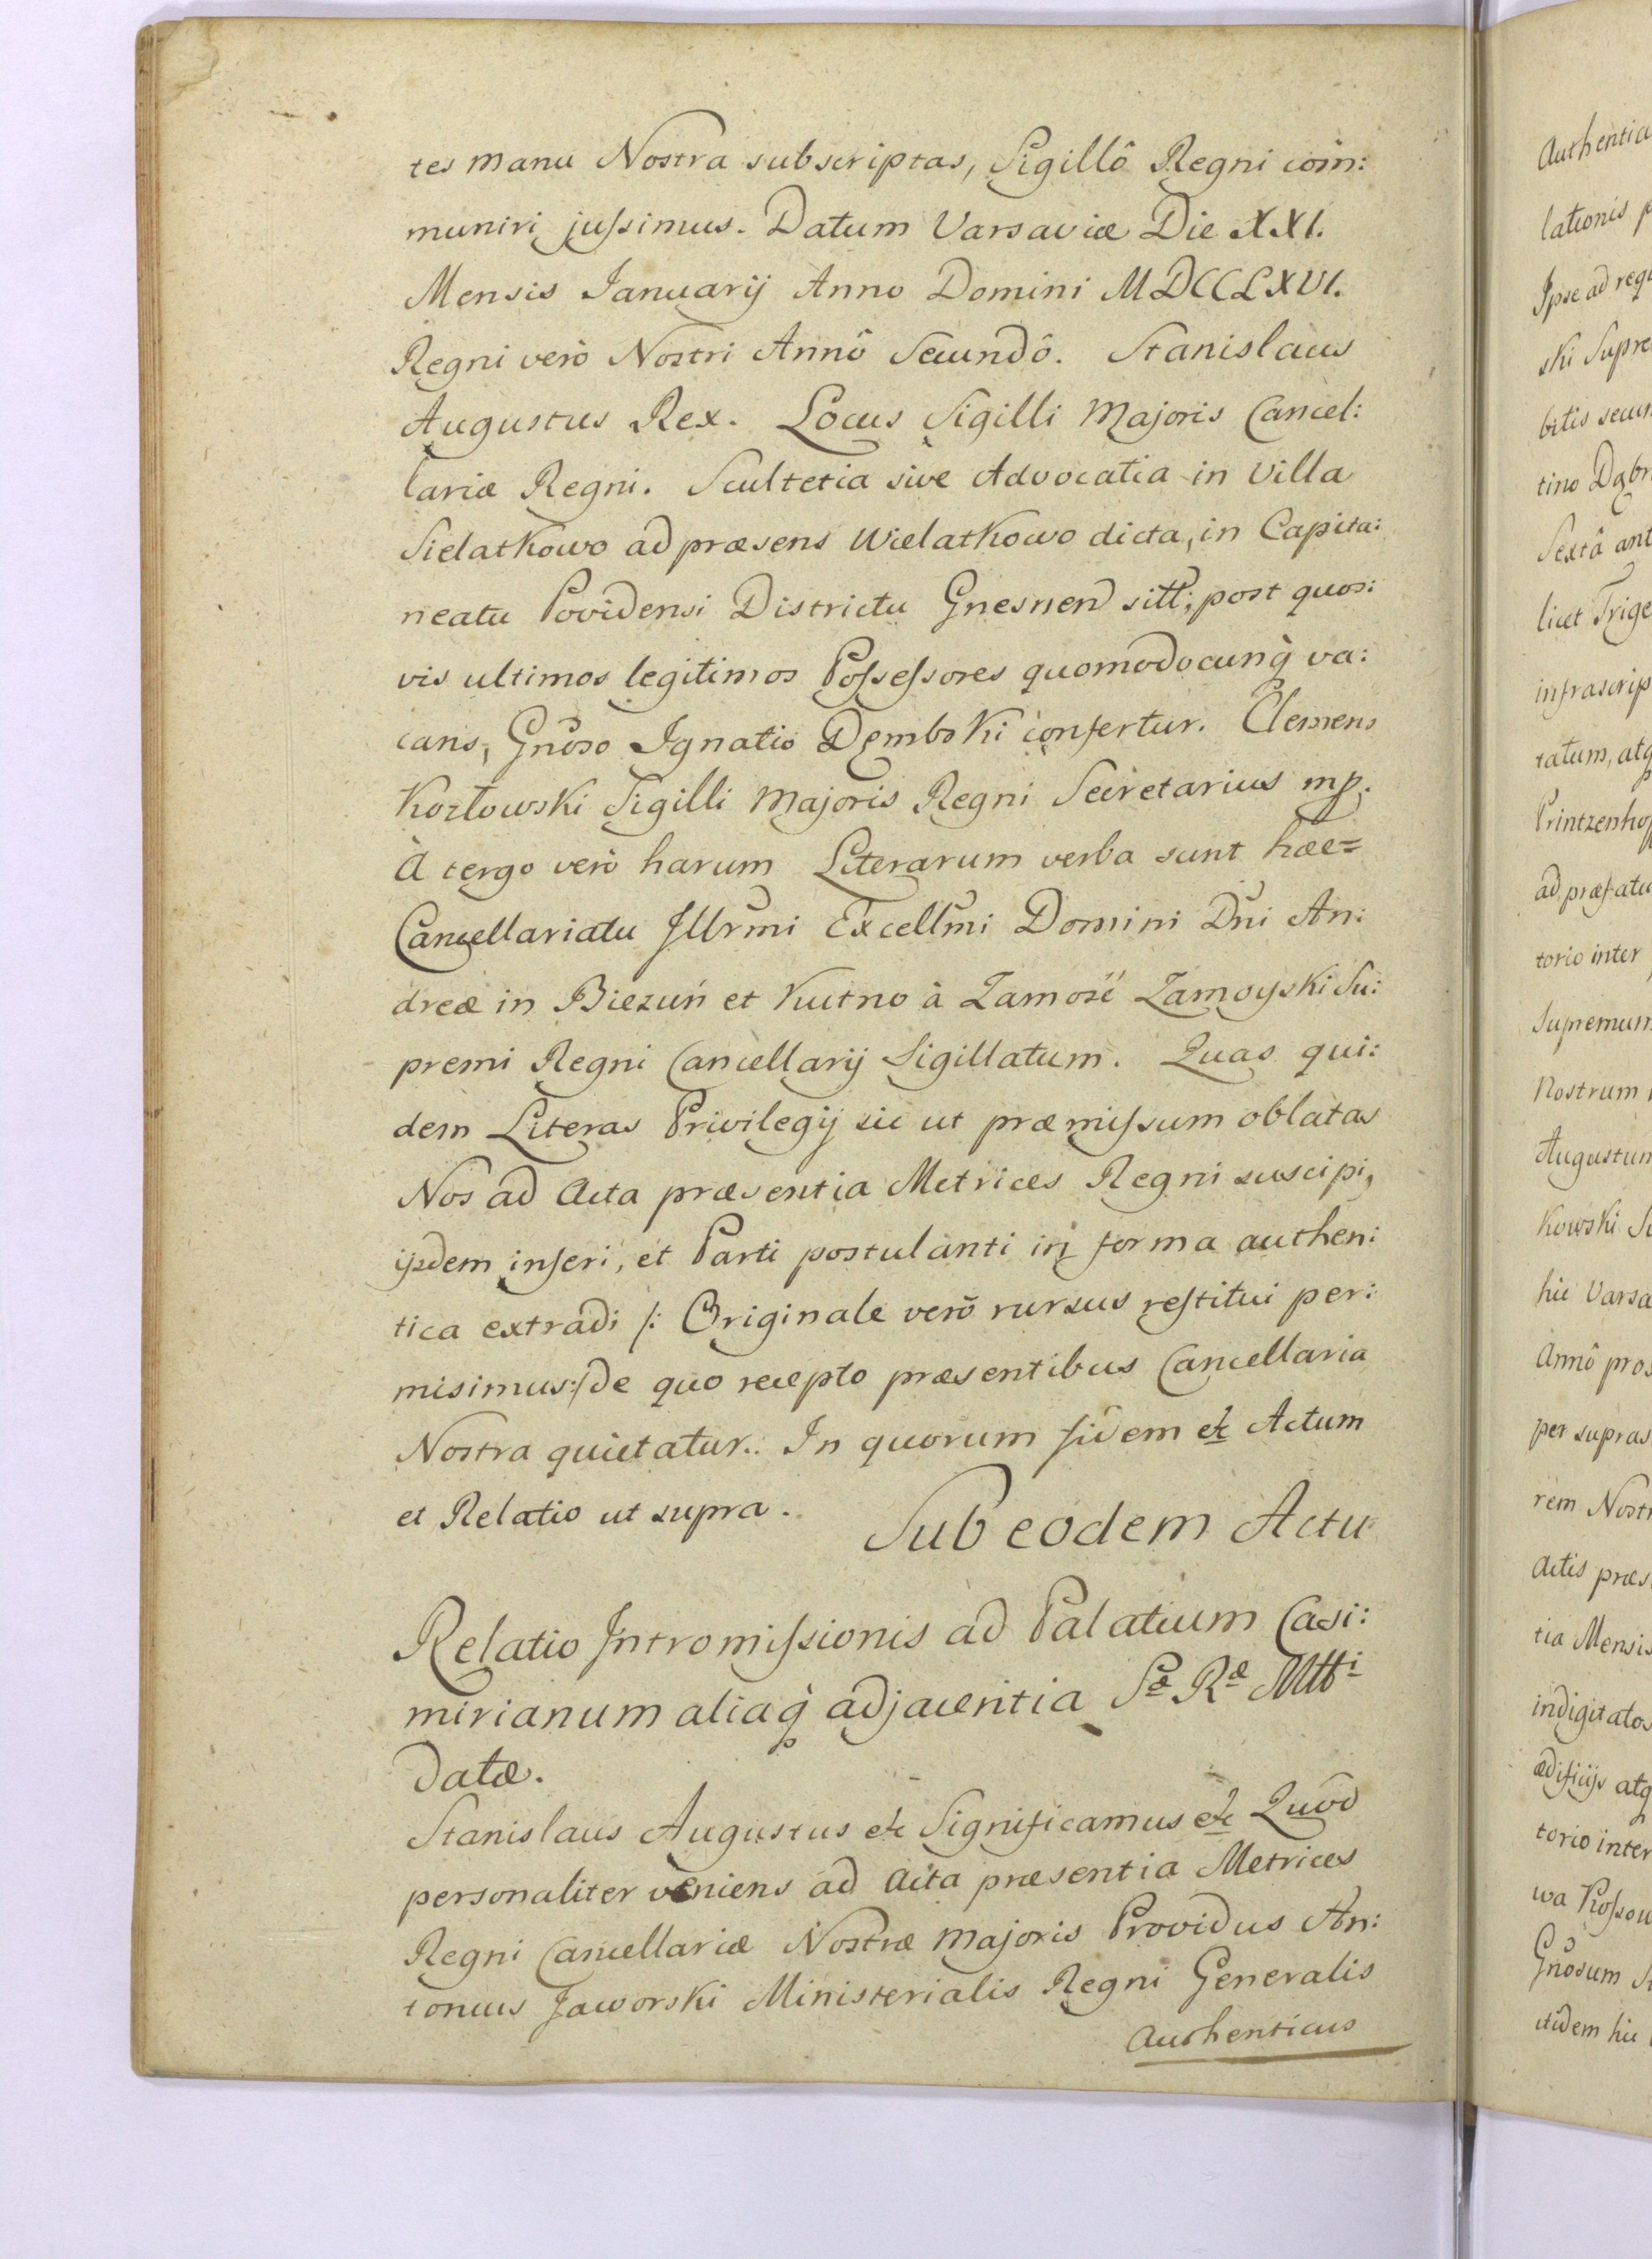 tes manu Nostra subscriptas, Sigillô Regni com̃:
muniri jussimus. Datum Varsaviæ Die XXI.
Mensis Januarij Anno Domini MDCCLXVI.
Regni verò Nostri Annô Secundô. Stanislaus
Augustus Rex. Locus Sigilli Majoris Cancel:
lariæ Regni. Scultetia sive Advocatia in Villa
Sielatkowo ad præsens Wielatkowo dicta, in Capita:
neatu Povidensi Districtu Gnesnen sitt; post quos:
vis ultimos legitimos Possessores quomodocunq̀ va:
cans, Gnõso Ignatio Dembski confertur. Clemens
Kozłowski Sigilli Majoris Regni Secretarius mp.
À tergo verò harum Literarum verba sunt hæc=
Cancellariatu Jllrmi Excellmi Domini Dni An:
dreæ in Biezuń et Kutno à Zamość Zamoyski Su:
premi Regni Cancellarij Sigillatum. Quas qui:
dem Literas Privilegij sic ut præmissum oblatas
Nos ad Acta præsentia Metrices Regni suscipi,
ijsdem inseri, et Parti postulanti in forma authen:
tica extradi /: Originale verò rursus restitui per:
misimus:/ de quo recepto præsentibus Cancellaria
Nostra quietatur. In quorum fidem etc Actum
et Relatio ut supra.
Sub eodem Actu
Relatio Intromissionis ad Palatium Casi:
mirianum aliaq̀ adjacentia Sæ Ræ Mtti
datæ.
Stanislaus Augustus etc Significamus etc Quod
personaliter veniens ad Acta præsentia Metrices
Regni Cancellariæ Nostræ Majoris Providus An:
tonius Jaworski Ministerialis Regni Generalis
Authenticus
Authentic
lationis p
Ipse ad requ
ski Supre
bitis secun
tino Dąbr
Sextâ ant
licet Trige
infrascrip
ratum, atq
Printzenhof
ad præfatu
torio inter
Supremum
Nostrum
Augustum
kowski Su
hic Varsa
Annô pros
per supras
rem Nostr
Actis præs
tia Mensis
indigitatos
ædificijs atq
torio inter
wa Kossow
Gnõsum St
itidem hic